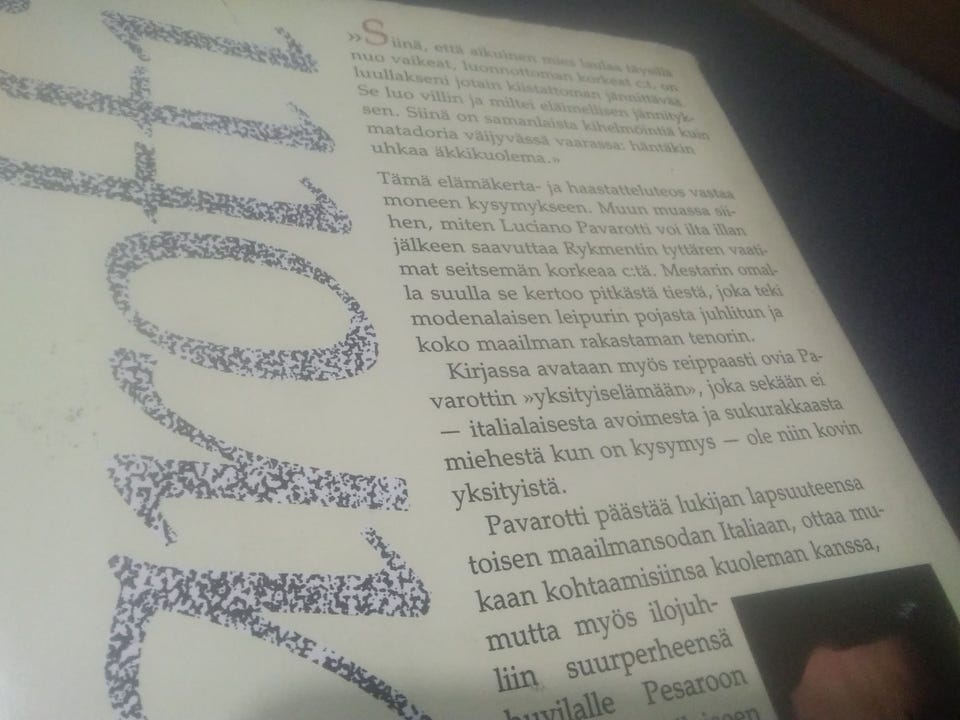 arotti
»Siinä, että aikuinen mies laulaa täysillä
nuo vaikeat, luonnottoman korkeat c:t, on
luullakseni jotain kiistattoman jännittävää.
Se luo villin ja miltei eläimellisen jännityk-
sen. Siinä on samanlaista kihelmöintiä kuin
matadoria väijyvässä vaarassa: häntäkin
uhkaa äkkikuolema.»
Tämä elämäkerta- ja haastatteluteos vastaa
moneen kysymykseen. Muun muassa sii-
hen, miten Luciano Pavarotti voi ilta illan
jälkeen saavuttaa Rykmentin tyttären vaati-
mat seitsemän korkeaa c:tä. Mestarin omal-
la suulla se kertoo pitkästä tiestä, joka teki
modenalaisen leipurin pojasta juhlitun ja
koko maailman rakastaman tenorin.
Kirjassa avataan myös reippaasti ovia Pa-
varottin »yksityiselämään», joka sekään ei
— italialaisesta avoimesta ja sukurakkaasta
miehestä kun on kysymys — ole niin kovin
yksityistä.
Pavarotti päästää lukijan lapsuuteensa
toisen maailmansodan Italiaan, ottaa mu-
kaan kohtaamisiinsa kuoleman kanssa,
mutta myös ilojuh-
liin suurperheensä
huvilalle Pesaroon